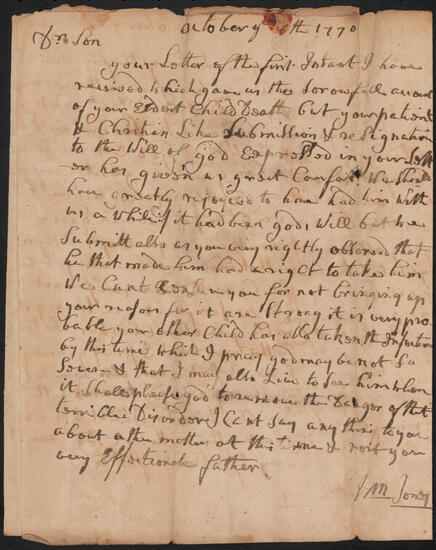 October ye 6th 1770
Dr Son
your Letter of the first Instant I have
received which gave us the sorowfull account
of your Eldest Child Death but your patient
& Christian Like Submission & resignation
to the Will of god Expressed in your Lett
er has given us great Comfort We should
have greatly rejoyced to have had him With
us a While if it had been gods Will but we
Submitt also as you very rightly observed that
he that made him had a right to take him
We Cant Condemn you for not bringing up
your reason for it are Strong it is very pro
bable your other Child has also taken the Infection
by this time which I pray god may be not So
Sever & that I may also Live to See him when
it Shall please god to remove the Danger of that
terrible Disorder I Cant Say any thing to you
about other matters at this time &
very Effectionate father
Jones